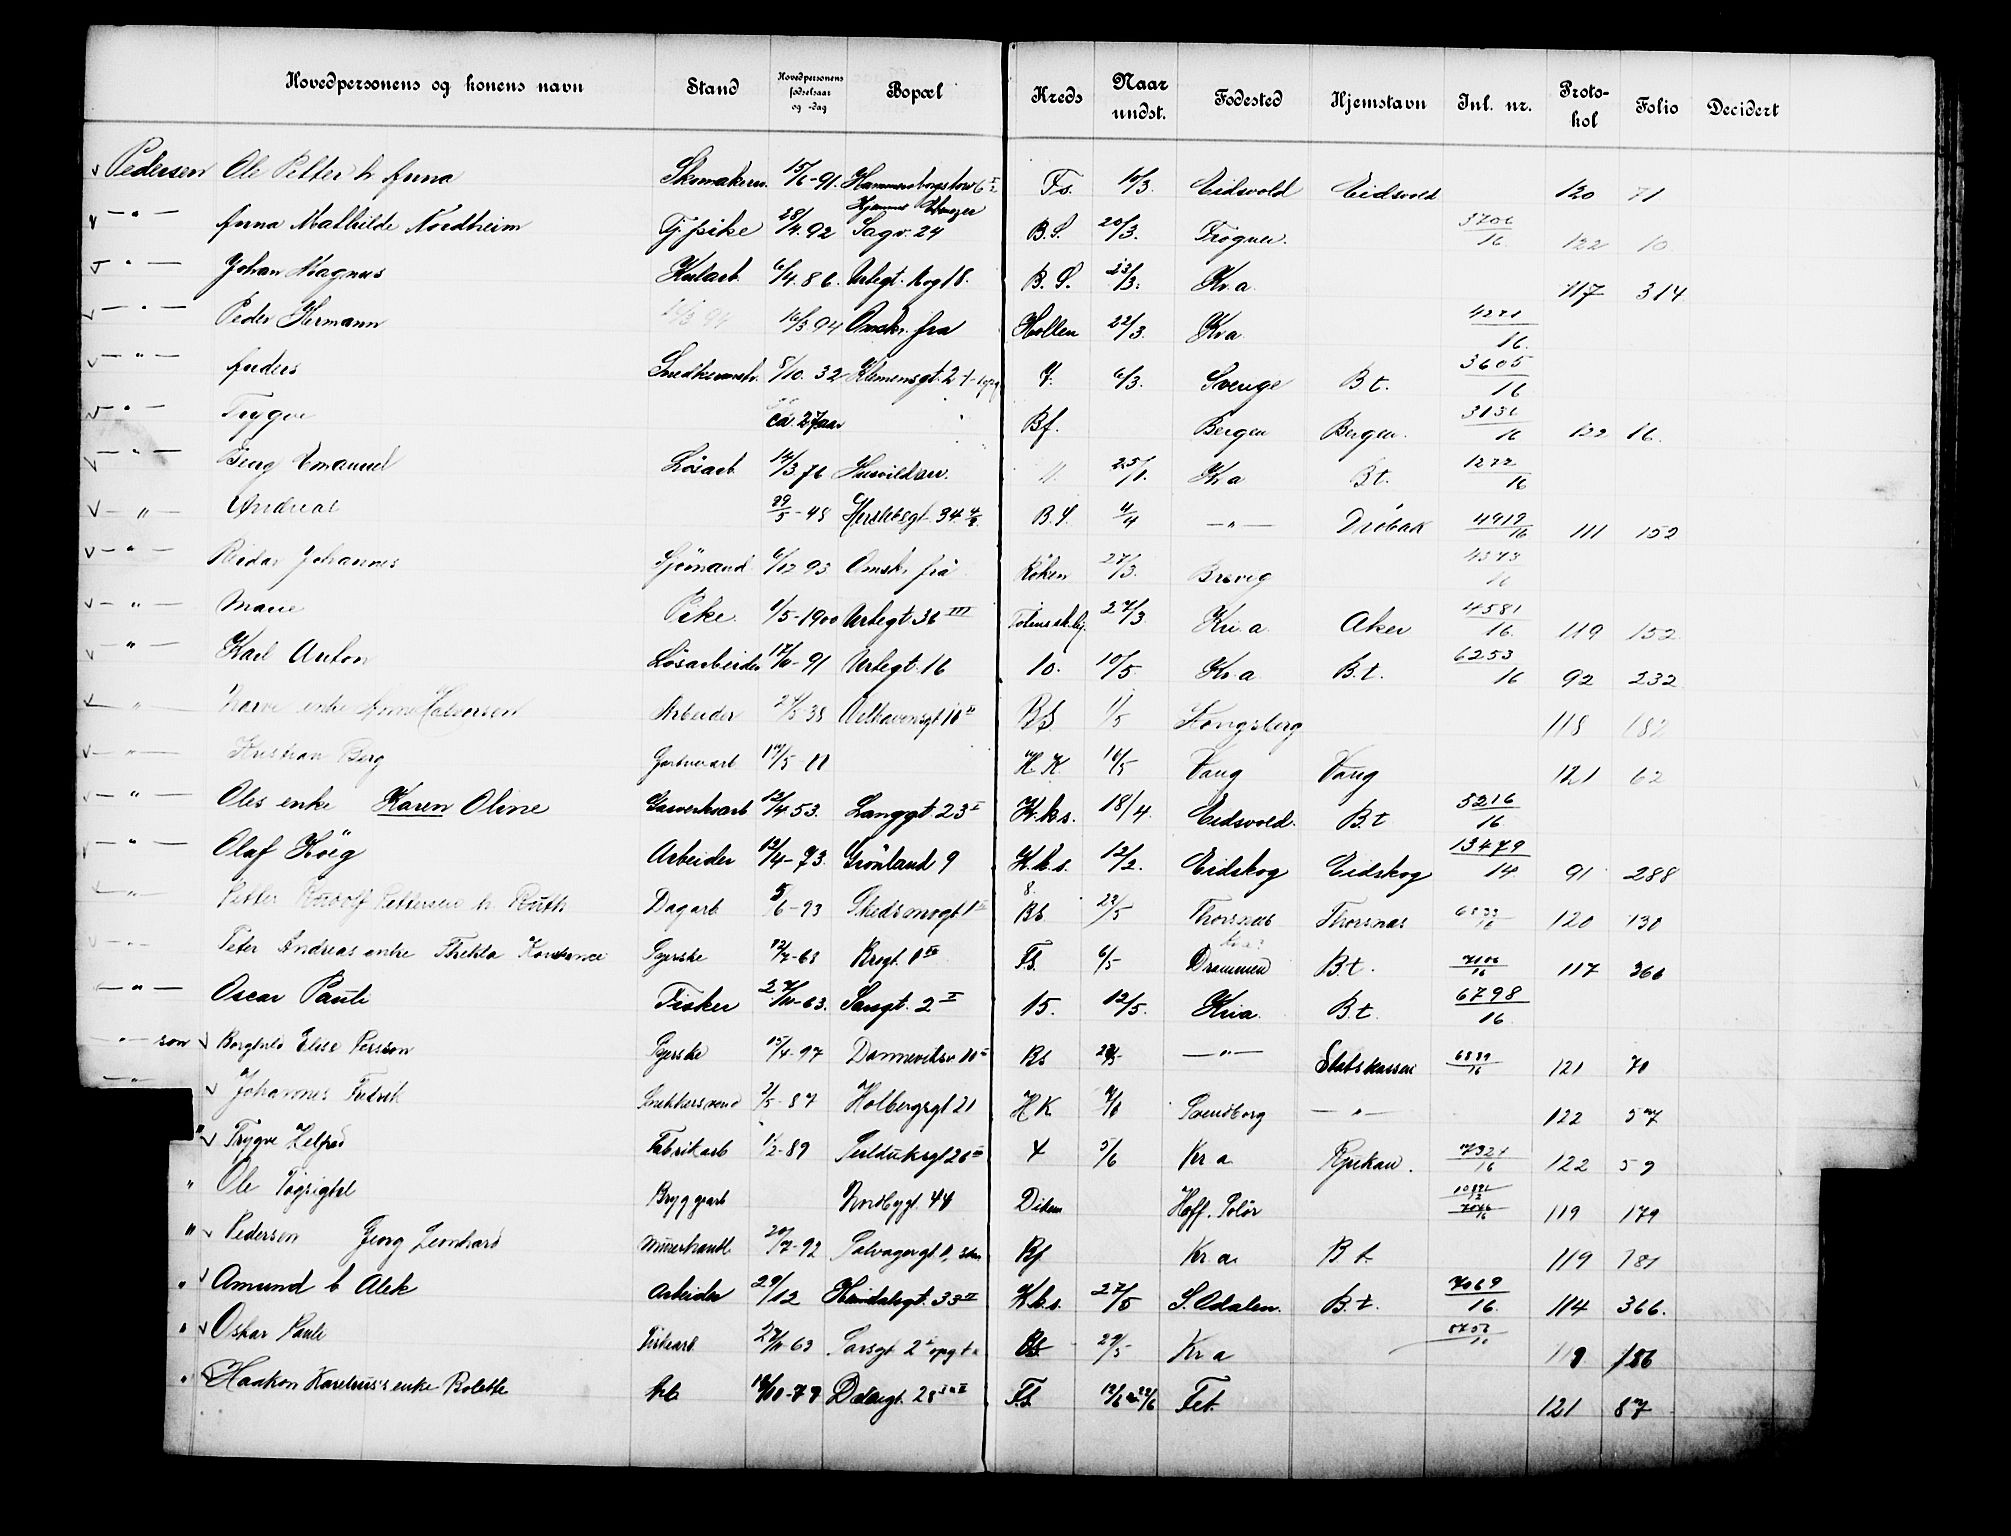 Hovedpersonens og konens navn Stand Hovedpersonens fødselsaar og -dag Bopæl Kreds Naar undst. Fødested Hjemstavn Inl. nr. Proto-kol Folio Decidert
Pedersen Ole Petter h Anna Skomakersv. 15/6-91. Hammersborgstorv 6 Fs. 10/3. Eidsvold Eidsvold 120 71
— " — Anna Mathilde Nordheim F. pike 28/4.92 Hjemmet Sagv. 24 B.S. 20/3. Frogner. 3706/16 122 10
— " — Johan Magnus Kularb. 6/4.86. Urtegt. 16 og 18. B.S. 23/3. Kr.a 117 314
— " — Peder Hermann 16/3 94 Omskr. fra Hollen 22/3. Kr.a 4271/16.
— " — Anders Snedkermstr. 8/10.32 Klemensgt. 2 Y. 6/3. Sverige B.t. 3605/16
— " — Trygve ca. 27 aar Bf. Bergen Bergen. 3131/16 122 16.
— " — Emanuel Løsarb. 14/3 76 Husvild 25/1. Kr a B.t. 1277/16
— " — Andreas 29/5-45 Herslebsgt. 34 B.S. 4/4 — " — Drøbak 4919/16 111 152
— " — Reidar Johannes Sjømand 6/12 93 Omskr. fra Røken 27/3. Brevig 4373/16
— " — Marie Pike. 1/5-1900 Urtegt 36 III 27/3 Kri.a. Aker 4581/16. 119 152
— " — Karl Anton Løsarbeider 17/6-91 Urtegt. 16 10. 10/5. Kr.a B.t. 6253/16 92 232
— " — enke Anne Halvorsen Arbeider 24/5-38 Welhavensgt 10 II BS 1/5 Kongsberg 118 182
— " — Kristian Berg Gartnerarb 19/5-11 H.K. 16/5 Vang Vang 121 62
— " — Oles enke Karen Oline Gasverksarb 12/4 53. Langgt. 23 I K.k.s. 18/4. Eidsvold. B.t 5216/16
— " — Olaf Høeg Arbeider 12/4-73. Grønland 9 K.k.s. 12/2. Eidskog Eidskog 13479/14. 91 288
— " — Petter Rudolf Pettersen h. Ruth Dagarb 5/6-93 Skedsmogt 1 II 8. BS 23/5 Thorsnes Thorsnes 6533/16 120 130
— " — Peter Andreas enke Thekla Konstance Syerske 12/7-68 Krogt. 1 III F.S. 6/5 Drammen B.t. 7106/16 117 366
— " — Oscar Pauli Fisker 27/10-63. Sarsgt. 2 I 15. 12/5. Kria. B.t. 6798/16
— " — son Borghild Elise Persson Syerske 15/4-97 Dannevikv. 10 II BS 23/5 — " — Statskassen 6839/16 121 70
— " — Johannes Fredrik Snekkersvend 2/5-87 Holbergsgt 21 H K 7/6 Svendborg — " — 122 57
" Trygve Fabrikarb 1/2-89 Seilduksgt 20 III 4 5/6 Kr a Rjukan. 7324/16 122 59
" Ole Bryggearb Nordbygt. 44 Diken Hoff. Solør 7076/16 119 179
" Pedersen Georg Leonhard Murerhaandl. 20/7-92 Solvagergt Bf Kr.a. B t. 119 181
" Amund h Alek Arbeider 29/12 Heimdalsgt. 33 II K.k.s. 27/5 S. Odalen. B.t. 7069/16. 114 366.
" Oskar Pauli Fiskearb. 27/10-63 Sarsgt 2 I opg. BS 29/5 Kr a 119 186
" Haakon enke Arb. Dælengt. 28 F.S. 12/6 22/6 Fet. 121 87